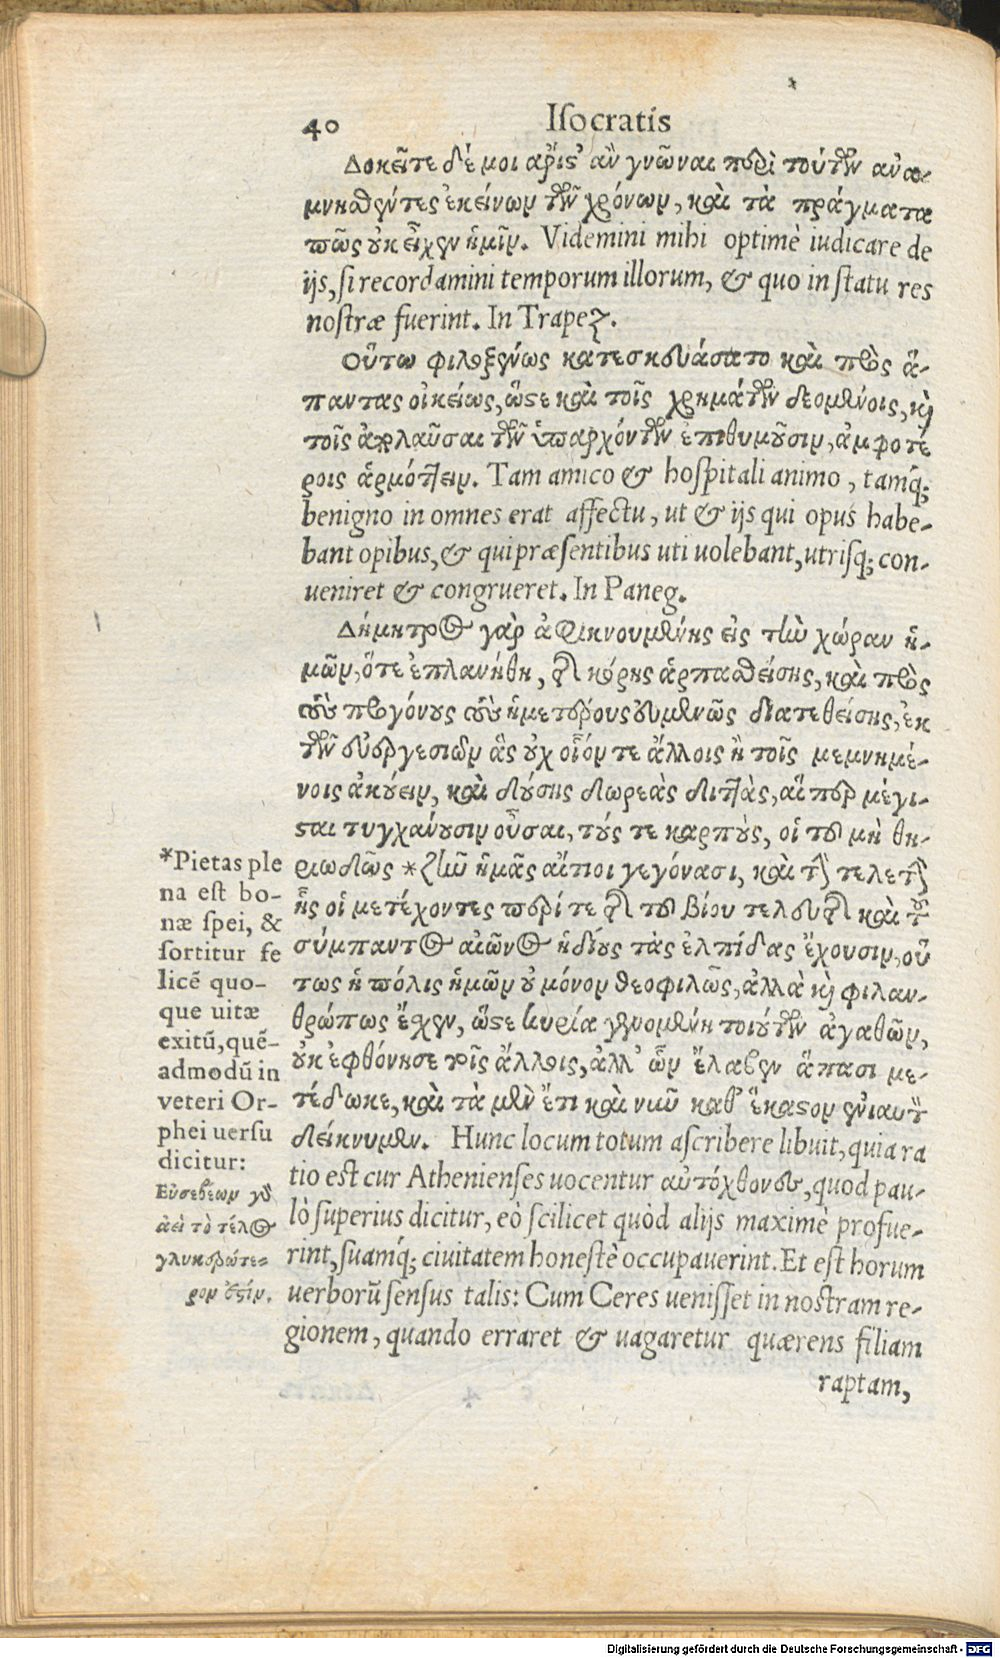 40 Iſocratis
Δοκεῖτε δέ μοι ἄριστ' ἂν γνῶναι περὶ τούτων ἀνα-
μνησθέντες ἐκείνων τῶν χρόνων, καὶ τὰ πράγματα
πῶς οὐκ εἶχεν ἡμῖν. Videmini mihi optimè iudicare de
ijs, ſi recordamini temporum illorum, & quo in ſtatu res
noſtræ fuerint. In Trapeꝫ.
Οὕτω φιλοξένως κατεσκευάσατο καὶ πρὸς ἅ-
παντας οἰκείως, ὥστε καὶ τοῖς χρημάτων δεομένοις, καὶ
τοῖς ἀπολαῦσαι τῶν ὑπαρχόντων ἐπιθυμοῦσιν, ἀμφοτέ
ροις ἁρμόττειν. Tam amico & hoſpitali animo, tamq́;
benigno in omnes erat affectu, ut & ijs qui opus habe-
bant opibus, & qui præſentibus uti uolebant, utriſq; con-
ueniret & congrueret. In Paneg.
Δήμητρος γὰρ ἀφικνουμένης εἰς τὴν χώραν ἡ-
μῶν, ὅτε ἐπλανήθη, τῆς κόρης ἁρπασθείσης, καὶ πρὸς
τοὺς προγόνους τοὺς ἡμετέρους εὐμενῶς διατεθείσης, ἐκ
τῶν εὐεργεσιῶν ἃς οὐχ οἷόν τε ἄλλοις ἢ τοῖς μεμνημέ-
νοις ἀκούειν, καὶ δούσης δωρεὰς διττὰς, αἵπερ μέγι-
σται τυγχάνουσιν οὖσαι, τούς τε καρποὺς, οἱ τοῦ μὴ θη-
ριωδῶς * ζῆν ἡμᾶς αἴτιοι γεγόνασι, καὶ τὴν τελετὴν
ἧς οἱ μετέχοντες περί τε τῆς τοῦ βίου τελευτῆς καὶ τοῦ
σύμπαντος αἰῶνος ἡδίους τὰς ἐλπίδας ἔχουσιν, οὕ
τως ἡ πόλις ἡμῶν οὐ μόνον θεοφιλῶς, ἀλλὰ καὶ φιλαν-
θρώπως ἔχεν, ὥστε κυρία γενομένη τοιούτων ἀγαθῶν,
οὐκ ἐφθόνησε τοῖς ἄλλοις, ἀλλ' ὧν ἔλαβεν ἅπασι με-
τέδωκε, καὶ τὰ μὲν ἔτι καὶ νῦν καθ' ἕκαστον ἐνιαυτὸν
δείκνυμεν. Hunc locum totum aſcribere libuit, quia ra
tio eſt cur Athenienſes uocentur αὐτόχθονες, quod pau-
lò ſuperius dicitur, eò ſcilicet quòd alijs maximè profue-
rint, ſuamq́; ciuitatem honeſtè occupauerint. Et eſt horum
uerborũ ſenſus talis: Cum Ceres ueniſſet in noſtram re-
gionem, quando erraret & uagaretur quærens filiam
raptam,
*Pietas ple
na est bo-
næ ſpei, &
ſortitur fe
licẽ quo-
que uitæ
exitũ, quẽ-
admodũ in
veteri Or-
phei uerſu
dicitur:
Εὐσεβέων γὰρ
ἀεὶ τὸ τέλος
γλυκερώτε-
ρον ἐστίν.
Digitalisierung gefördert durch die Deutsche Forschungsgemeinschaft - DFG